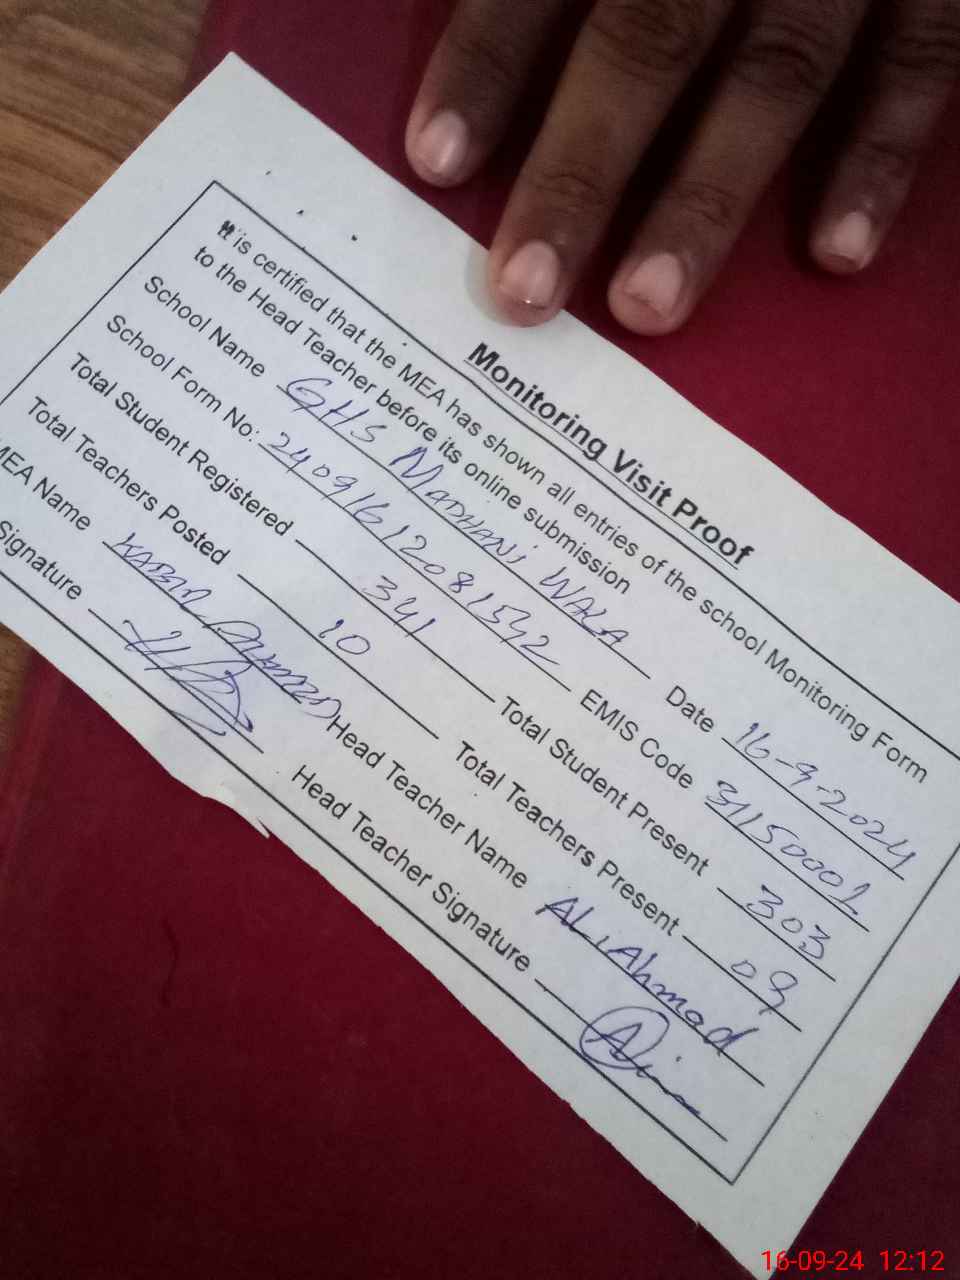 Monitoring Visit Proof
It is certified that the MEA has shown all entries of the school Monitoring Form
to the Head Teacher before its online submission
School Name GHS MADHANi WALA Date 16-9-2024
School Form No: 24091612081542 EMIS Code 31150001
Total Student Registered 341 Total Student Present 303
Total Teachers Posted 10 Total Teachers Present 09
MEA Name KABIR AHMED Head Teacher Name ALi Ahmad
Signature Head Teacher Signature
16-09-24 12:12